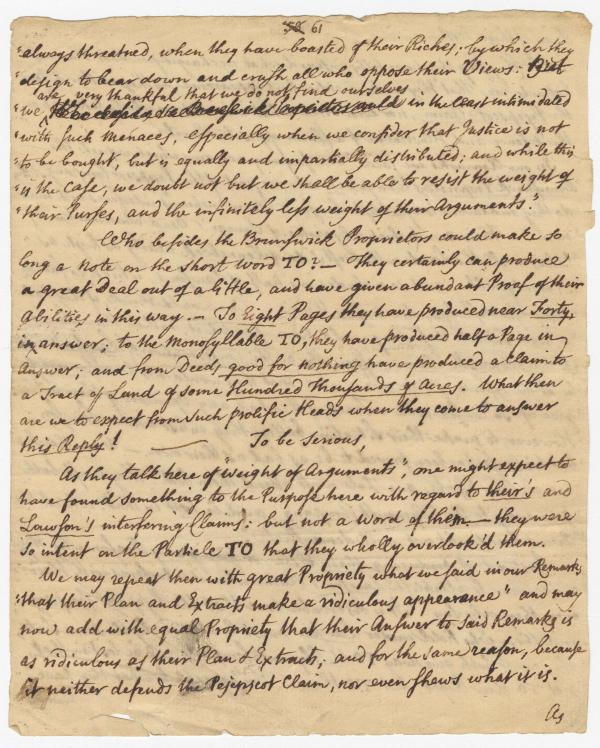 58 61
"always threatned, when they have boasted of their Riches; by which they
"design to bear down and crush all who oppose their Views: But
are very thankful that we do not find ourselves
"we in the least intimidated
"with such Menaces, especially when we consider that Justice is not
"to be bought, but is equally and impartially distributed; and while this
"is the Case, we doubt not but we shall be able to resist the weight of
"their Purses, and the infinitely less weight of their Arguments."
Who besides the Brunswick Proprietors could make so
long a Note on the short word TO? — They certainly can produce
a great Deal out of a little, and have given abundant Proof of their
abilities in this way. — To Eight Pages they have produced near Forty,
in answer; to the Monosyllable TO, they have produced half a Page in
Answer; and from Deeds good for nothing have produced a Claim to
a Tract of Land of some Hundred Thousands of Acres. What then
are we to expect from such prolific Heads when they come to answer
this Reply! — To be serious,
As they talk here of "weight of Arguments", one might expect to
have found something to the Purpose here with regard to their's and
Lawson's interfering Claims: but not a word of them — they were
so intent on the Particle TO that they wholly overlook'd them.
We may repeat then with great Propriety what we said in our Remarks
"that their Plan and Extracts make a ridiculous appearance" and may
now add with equal Propriety that their Answer to said Remarks is
as ridiculous as their Plan & Extracts; and for the same reason, because
it neither defends the Pejepscot Claim, nor even shews what it is.
As